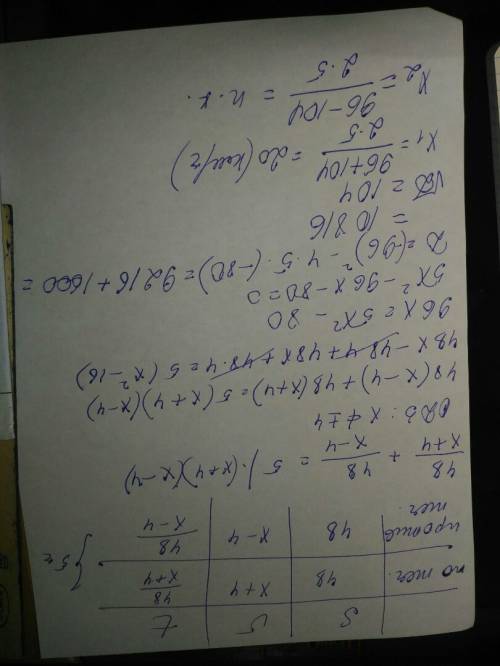 S | V | t
по теч. | 48 | x+4 | 48/(x+4)
против теч. | 48 | x-4 | 48/(x-4) } 5ч
48/(x+4) + 48/(x-4) = 5 | · (x+4)(x-4)
ОДЗ: x ≠ ±4
48(x-4)+48(x+4)=5(x+4)(x-4)
48x-48·4+48x+48·4=5(x²-16)
96x=5x²-80
5x²-96x-80=0
D=(-96)²-4·5·(-80)=9216+1600=
= 10816
√D = 104
x₁ = (96+104)/(2·5) = 20 (км/ч)
x₂ = (96-104)/(2·5) = п.к.